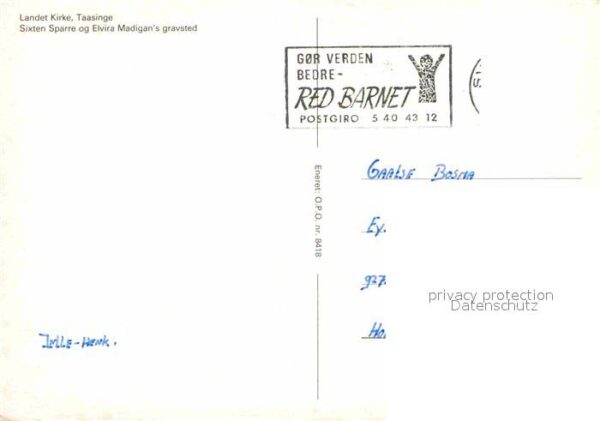 Landet Kirke, Taasinge
Sixten Sparre og Elvira Madigan's gravsted
GØR VERDEN
BEDRE-
RED BARNET
POSTGIRO 5 40 43 12
Eneret: O.P.O. nr. 8418
GAALSE BOSMA
Ey.
927.
Ho.
privacy protection
Datenschutz
JELLE-HENK.